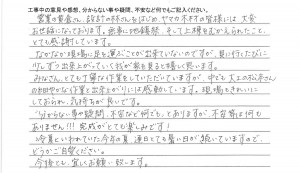 工事中の意見や感想、分からない事や疑問、不安など何でもご記入ください。
営業の青倉さん、設計の林さんをはじめ、ヤマカ木材の皆様には、大変
お世話になっております。無事に地鎮祭、そして上棟をむかえられたこと、
とても感謝しています。
なかなか現場に足を運ぶことが出来ていないのですが、見に行くたびに
少しずつ出来上がっていく我が家を嬉しく思います。
みなさん、とても丁寧な作業をしていただいていますが、中でも大工の
のきめ細やかな作業と出来上がりには感動しています。現場もきれいに
しておられ、気持ちが良いです。
分からない事や疑問、不安など何でも、とありますが、不安等は何も
ありません!!!完成がとても楽しみです!
冷夏といわれていた今年の夏、連日とても暑い日が続いていますので、
どうかご自愛ください。
今後とも、宜しくお願い致します。